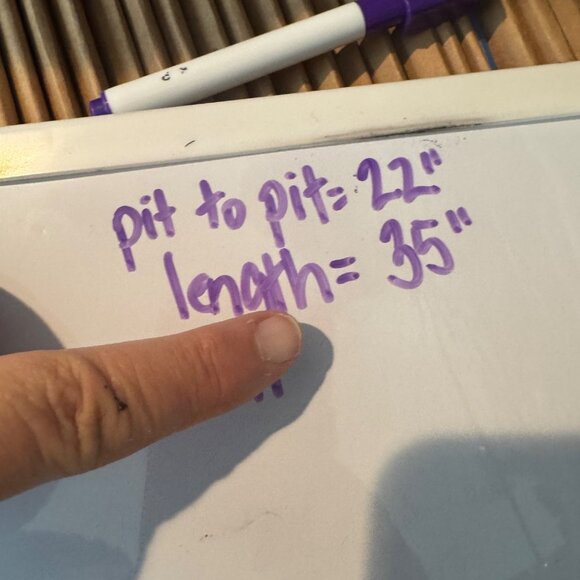 pit to pit= 22"
length= 35"